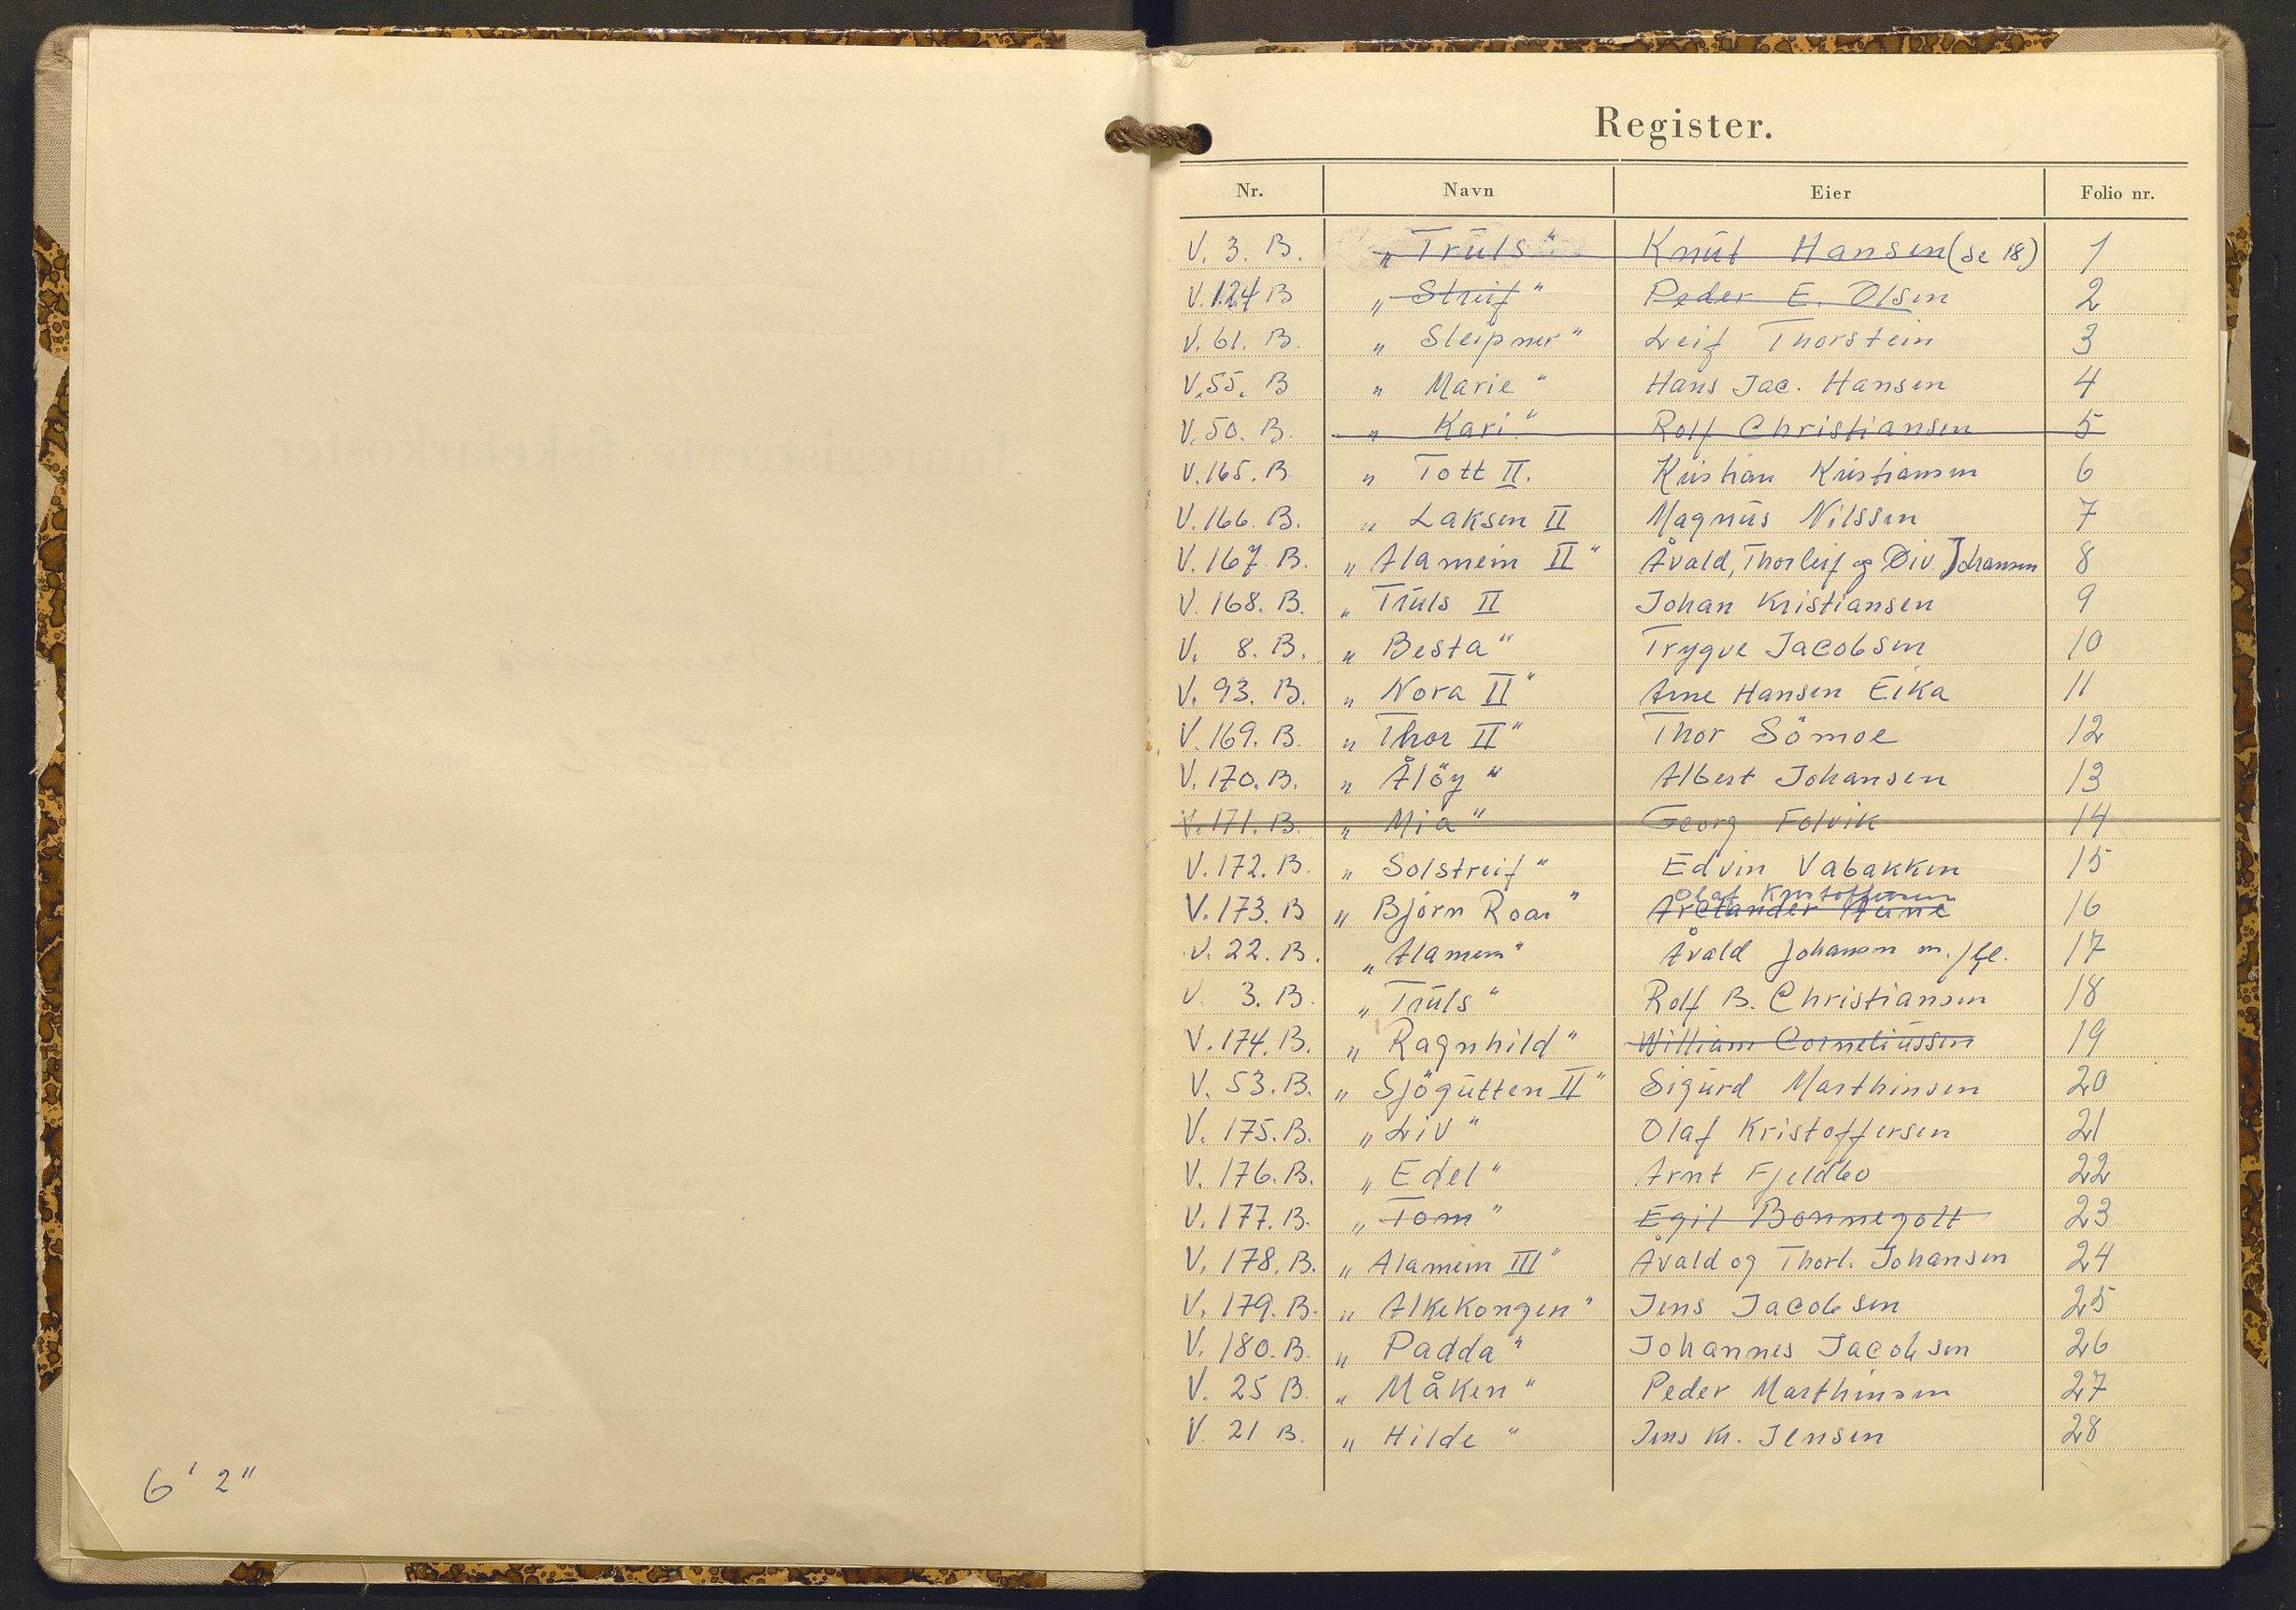 6' 2"
Register.
Nr. Navn Eier Folio nr.
V. 3. B. „Truls" Knut Hansen (se 18) 1
V. 124 B „Streif" Peder E. Olsen 2
V. 61. B. „Sleipner" Leif Thorstein 3
V. 55. B „Marie" Hans Jac. Hansen 4
V. 50. B. „Kari" Rolf Christiansen 5
V. 165. B „Tott II. Kristian Kristiansen 6
V. 166. B. „Laksen II Magnus Nilssen 7
V. 167. B. „Alamein II" Åvald, Thorleif og Div. Johansen 8
V. 168. B. „Truls II Johan Kristiansen 9
V. 8. B. „Besta" Trygve Jacobsen 10
V. 93. B. „Nora II" Arne Hansen Eika 11
V. 169. B. „Thor II" Thor Sömoe 12
V. 170. B. „Ålöy" Albert Johansen 13
V. 171. B. „Mia" Georg Folvik 14
V. 172. B. „Solstreif" Edvin Vabakken 15
Olaf Kristoffersen
V. 173. B „Bjørn Roar" Arctander Aune 16
V. 22. B. „Alamein" Åvald Johansen m./fl. 17
V. 3. B. „Truls" Rolf B. Christiansen 18
V. 174. B. „Ragnhild" William Corneliussen 19
V. 53. B. „Sjögutten II" Sigurd Marthinsen 20
V. 175. B. „Liv" Olaf Kristoffersen 21
V. 176. B. „Edel" Arnt Fjeldbo 22
V. 177. B. „Tom" Egil Bonnegolt 23
V. 178. B. „Alamein III" Åvald og Thorl. Johansen 24
V. 179. B. „Alkekongen" Jens Jacobsen 25
V. 180. B. „Padda" Johannes Jacobsen 26
V. 25 B. „Måken" Peder Marthinsen 27
V. 21 B. „Hilde" Jens Kr. Jensen 28